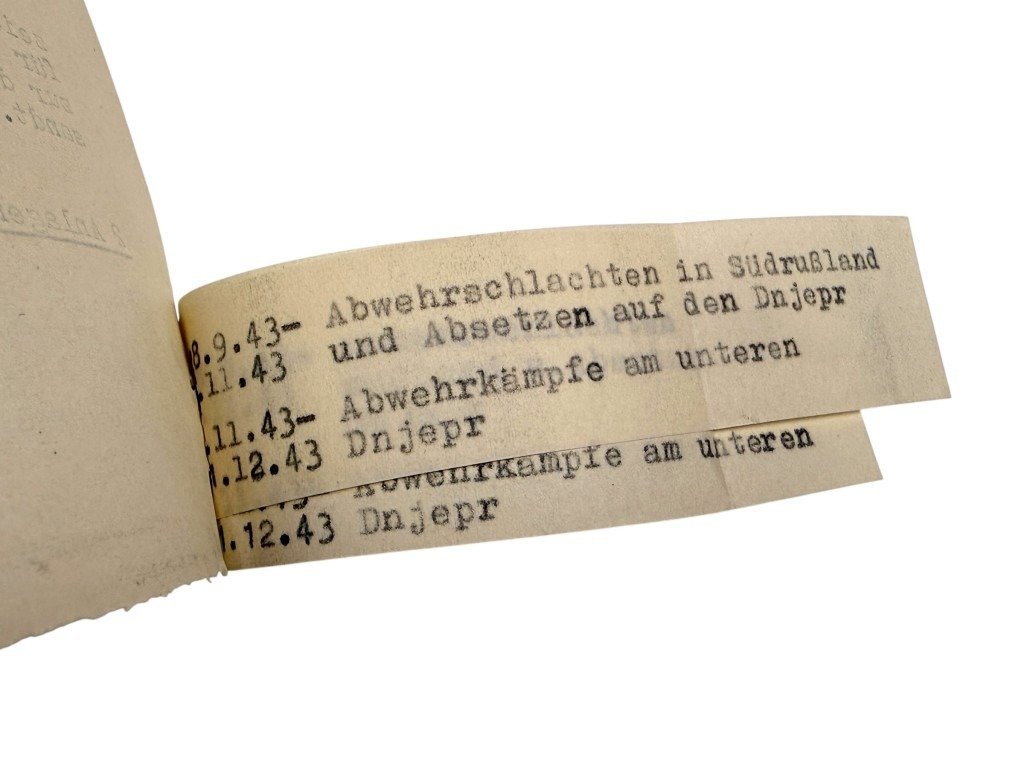 8.9.43- Abwehrschlachten in Südrußland
.11.43 und Absetzen auf den Dnjepr
.11.43- Abwehrkämpfe am unteren
1.12.43 Dnjepr
Abwehrkämpfe am unteren
.12.43 Dnjepr
für
zur d
sandt.
2 Anlage